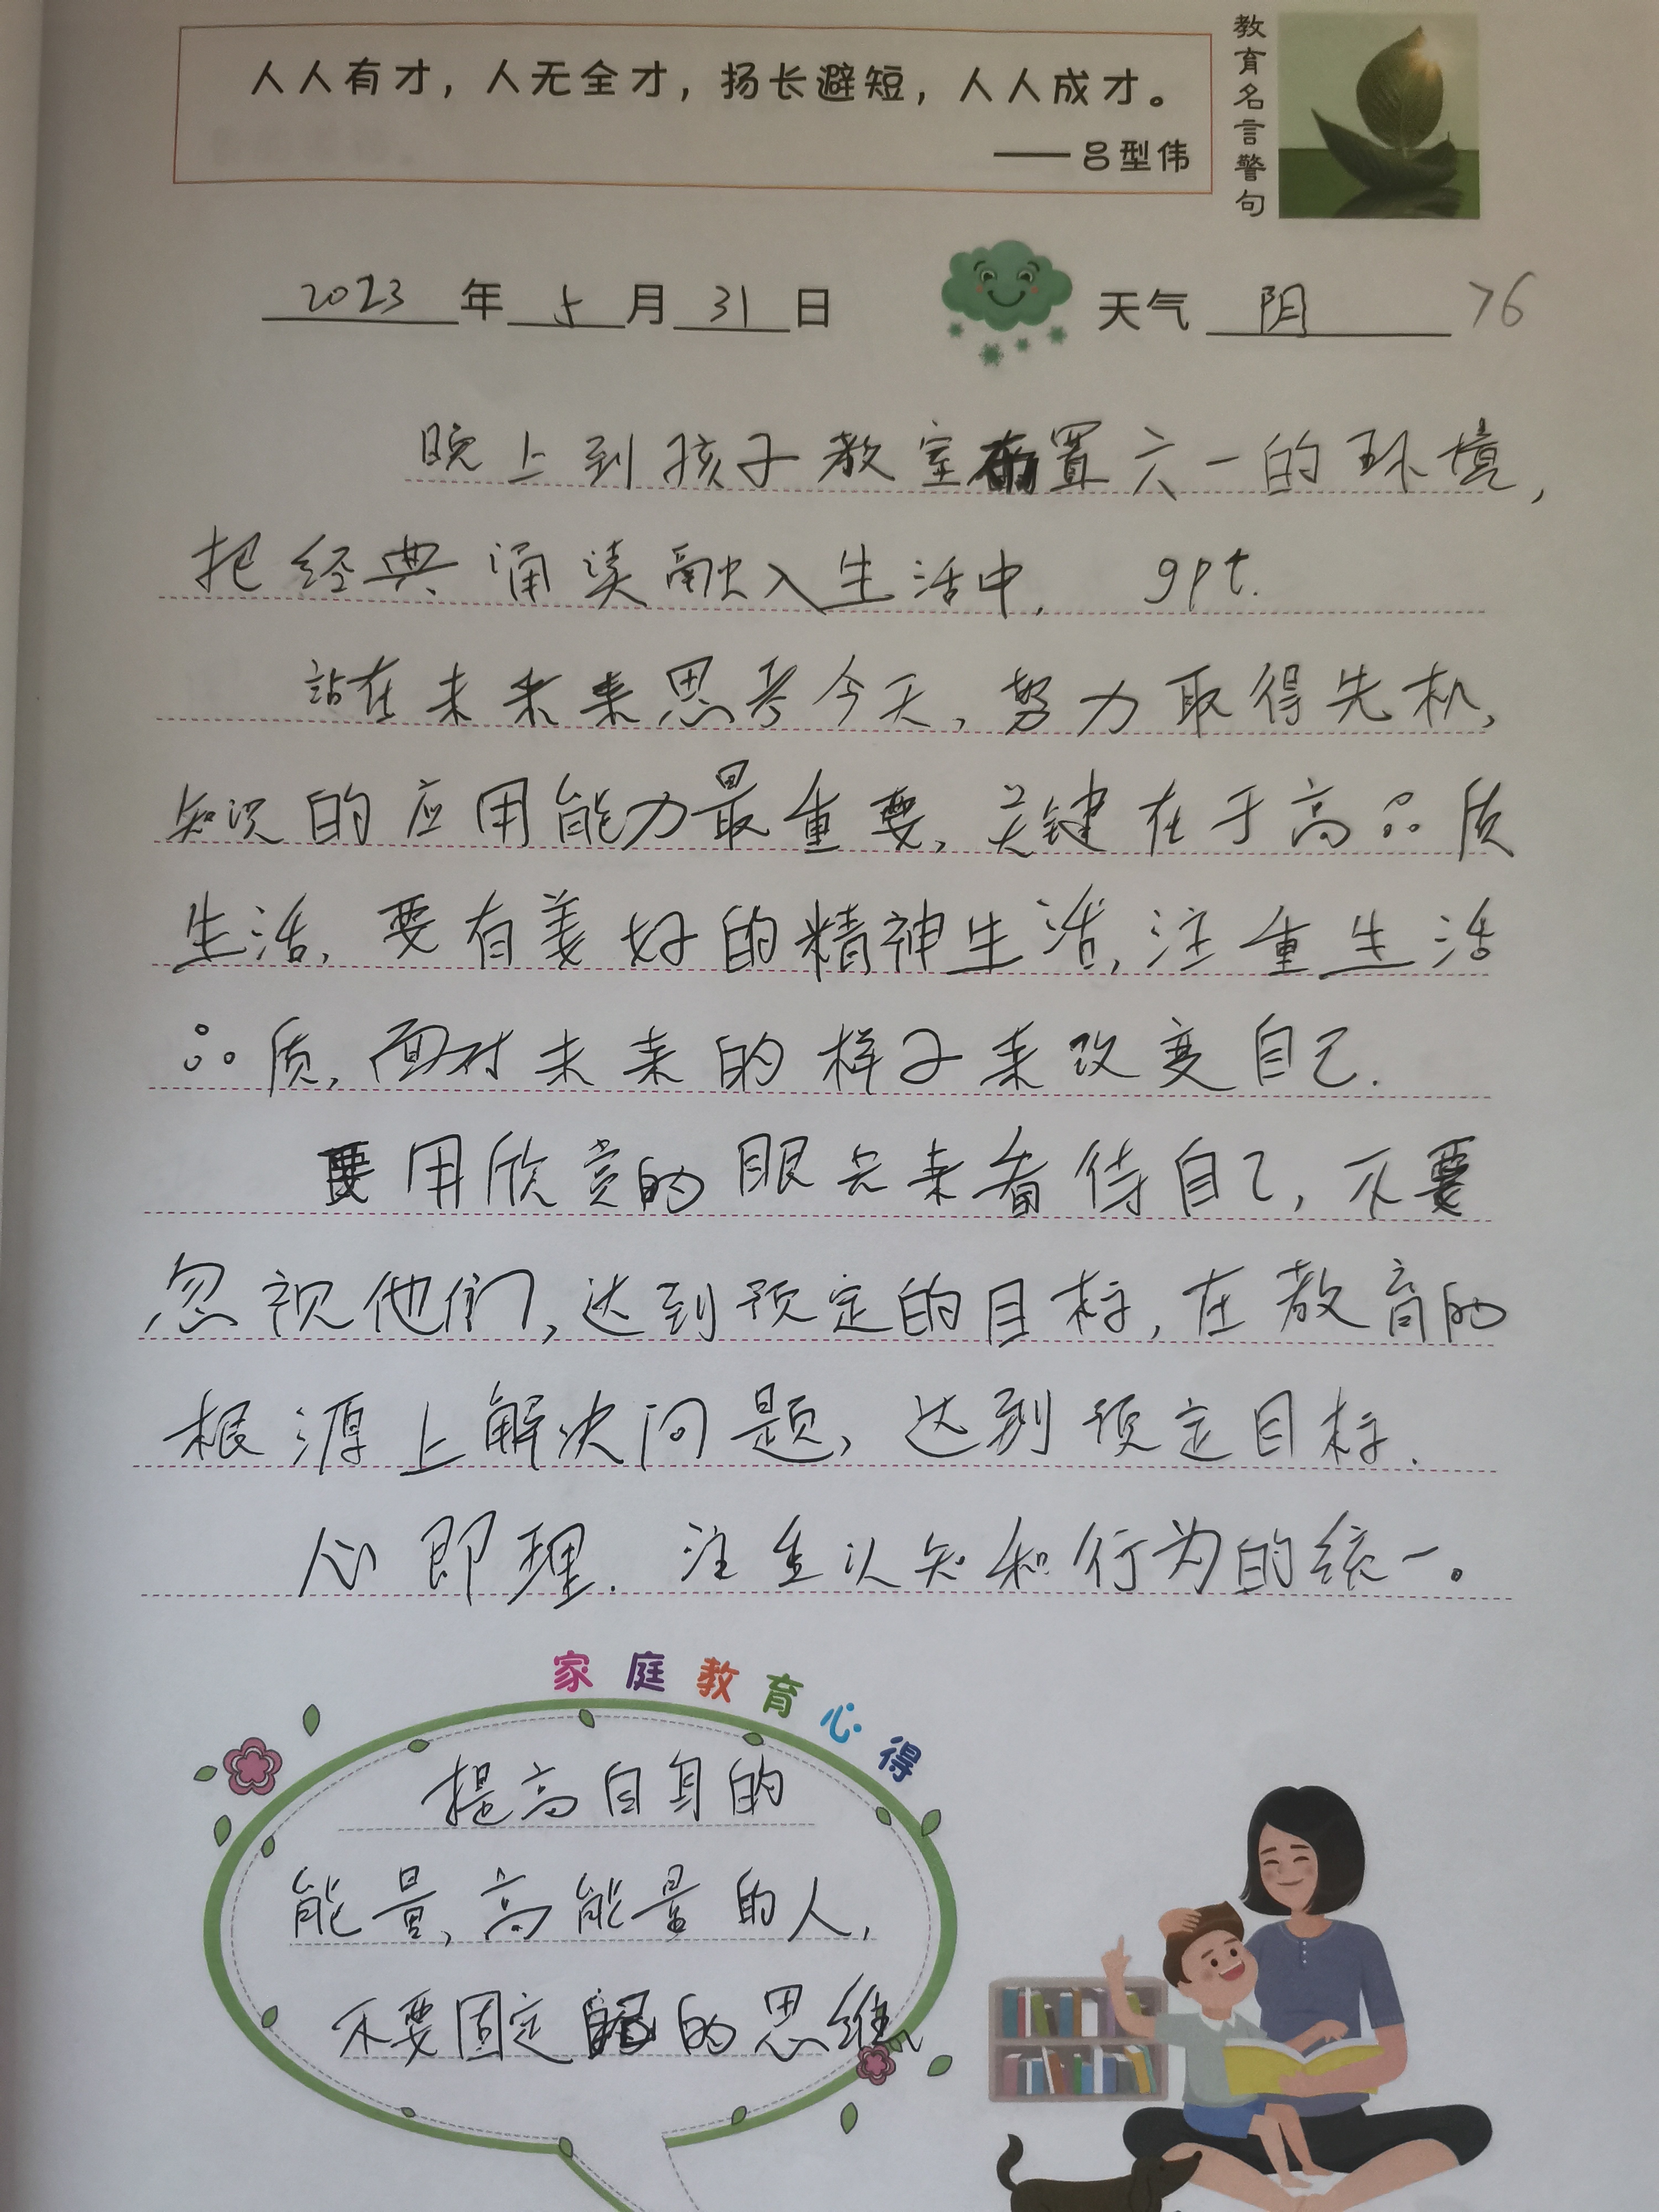 人人有才，人无全才，扬长避短，人人成才。
——吕型伟
教育名言警句
2023年5月31日 天气 阴 76
晚上到孩子教室布置六一的环境,
把经典诵读融入生活中. gpt.
站在未未来思考今天,努力取得先机,
知识的应用能力最重要,关键在于高品质
生活,要有美好的精神生活,注重生活
品质,面对未来的样子来改变自己.
要用欣赏的眼光来看待自己,不要
忽视他们,达到预定的目标,在教育的
根源上解决问题,达到预定目标.
心即理.注重认知和行为的统一。
家庭教育心得
提高自身的
能量,高能量的人,
不要固定的思维